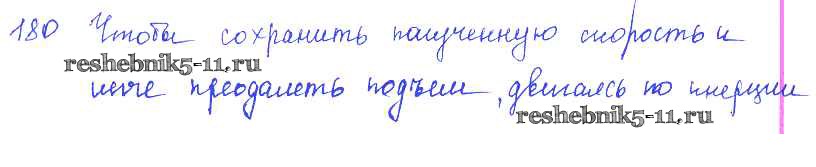 180 Чтобы сохранить полученную скорость и
reshebnik5-11.ru
легче преодолеть подъем, двигаясь по инерции
reshebnik5-11.ru